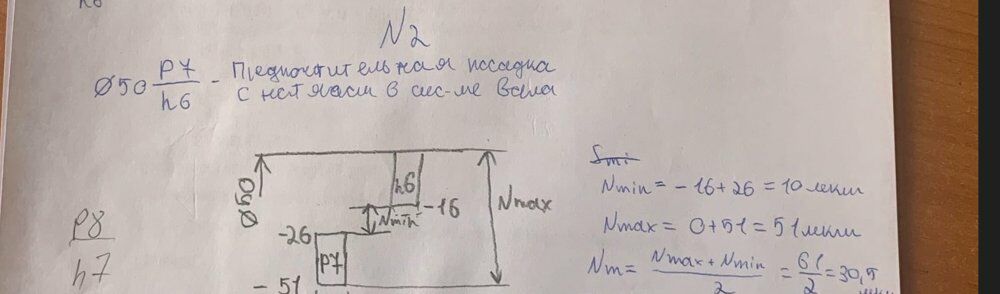 N2
Ø50 P7/h6 - Предпочтительная посадка
с натягом в сис-ме вала
Ø50
h6
Nmin
-16
Nmax
-26
P7
- 51
P8
h7
Smi
Nmin = - 16 + 26 = 10 мкм
Nmax = 0 + 51 = 51 мкм
Nm = (Nmax + Nmin)/2 = 61/2 = 30,5